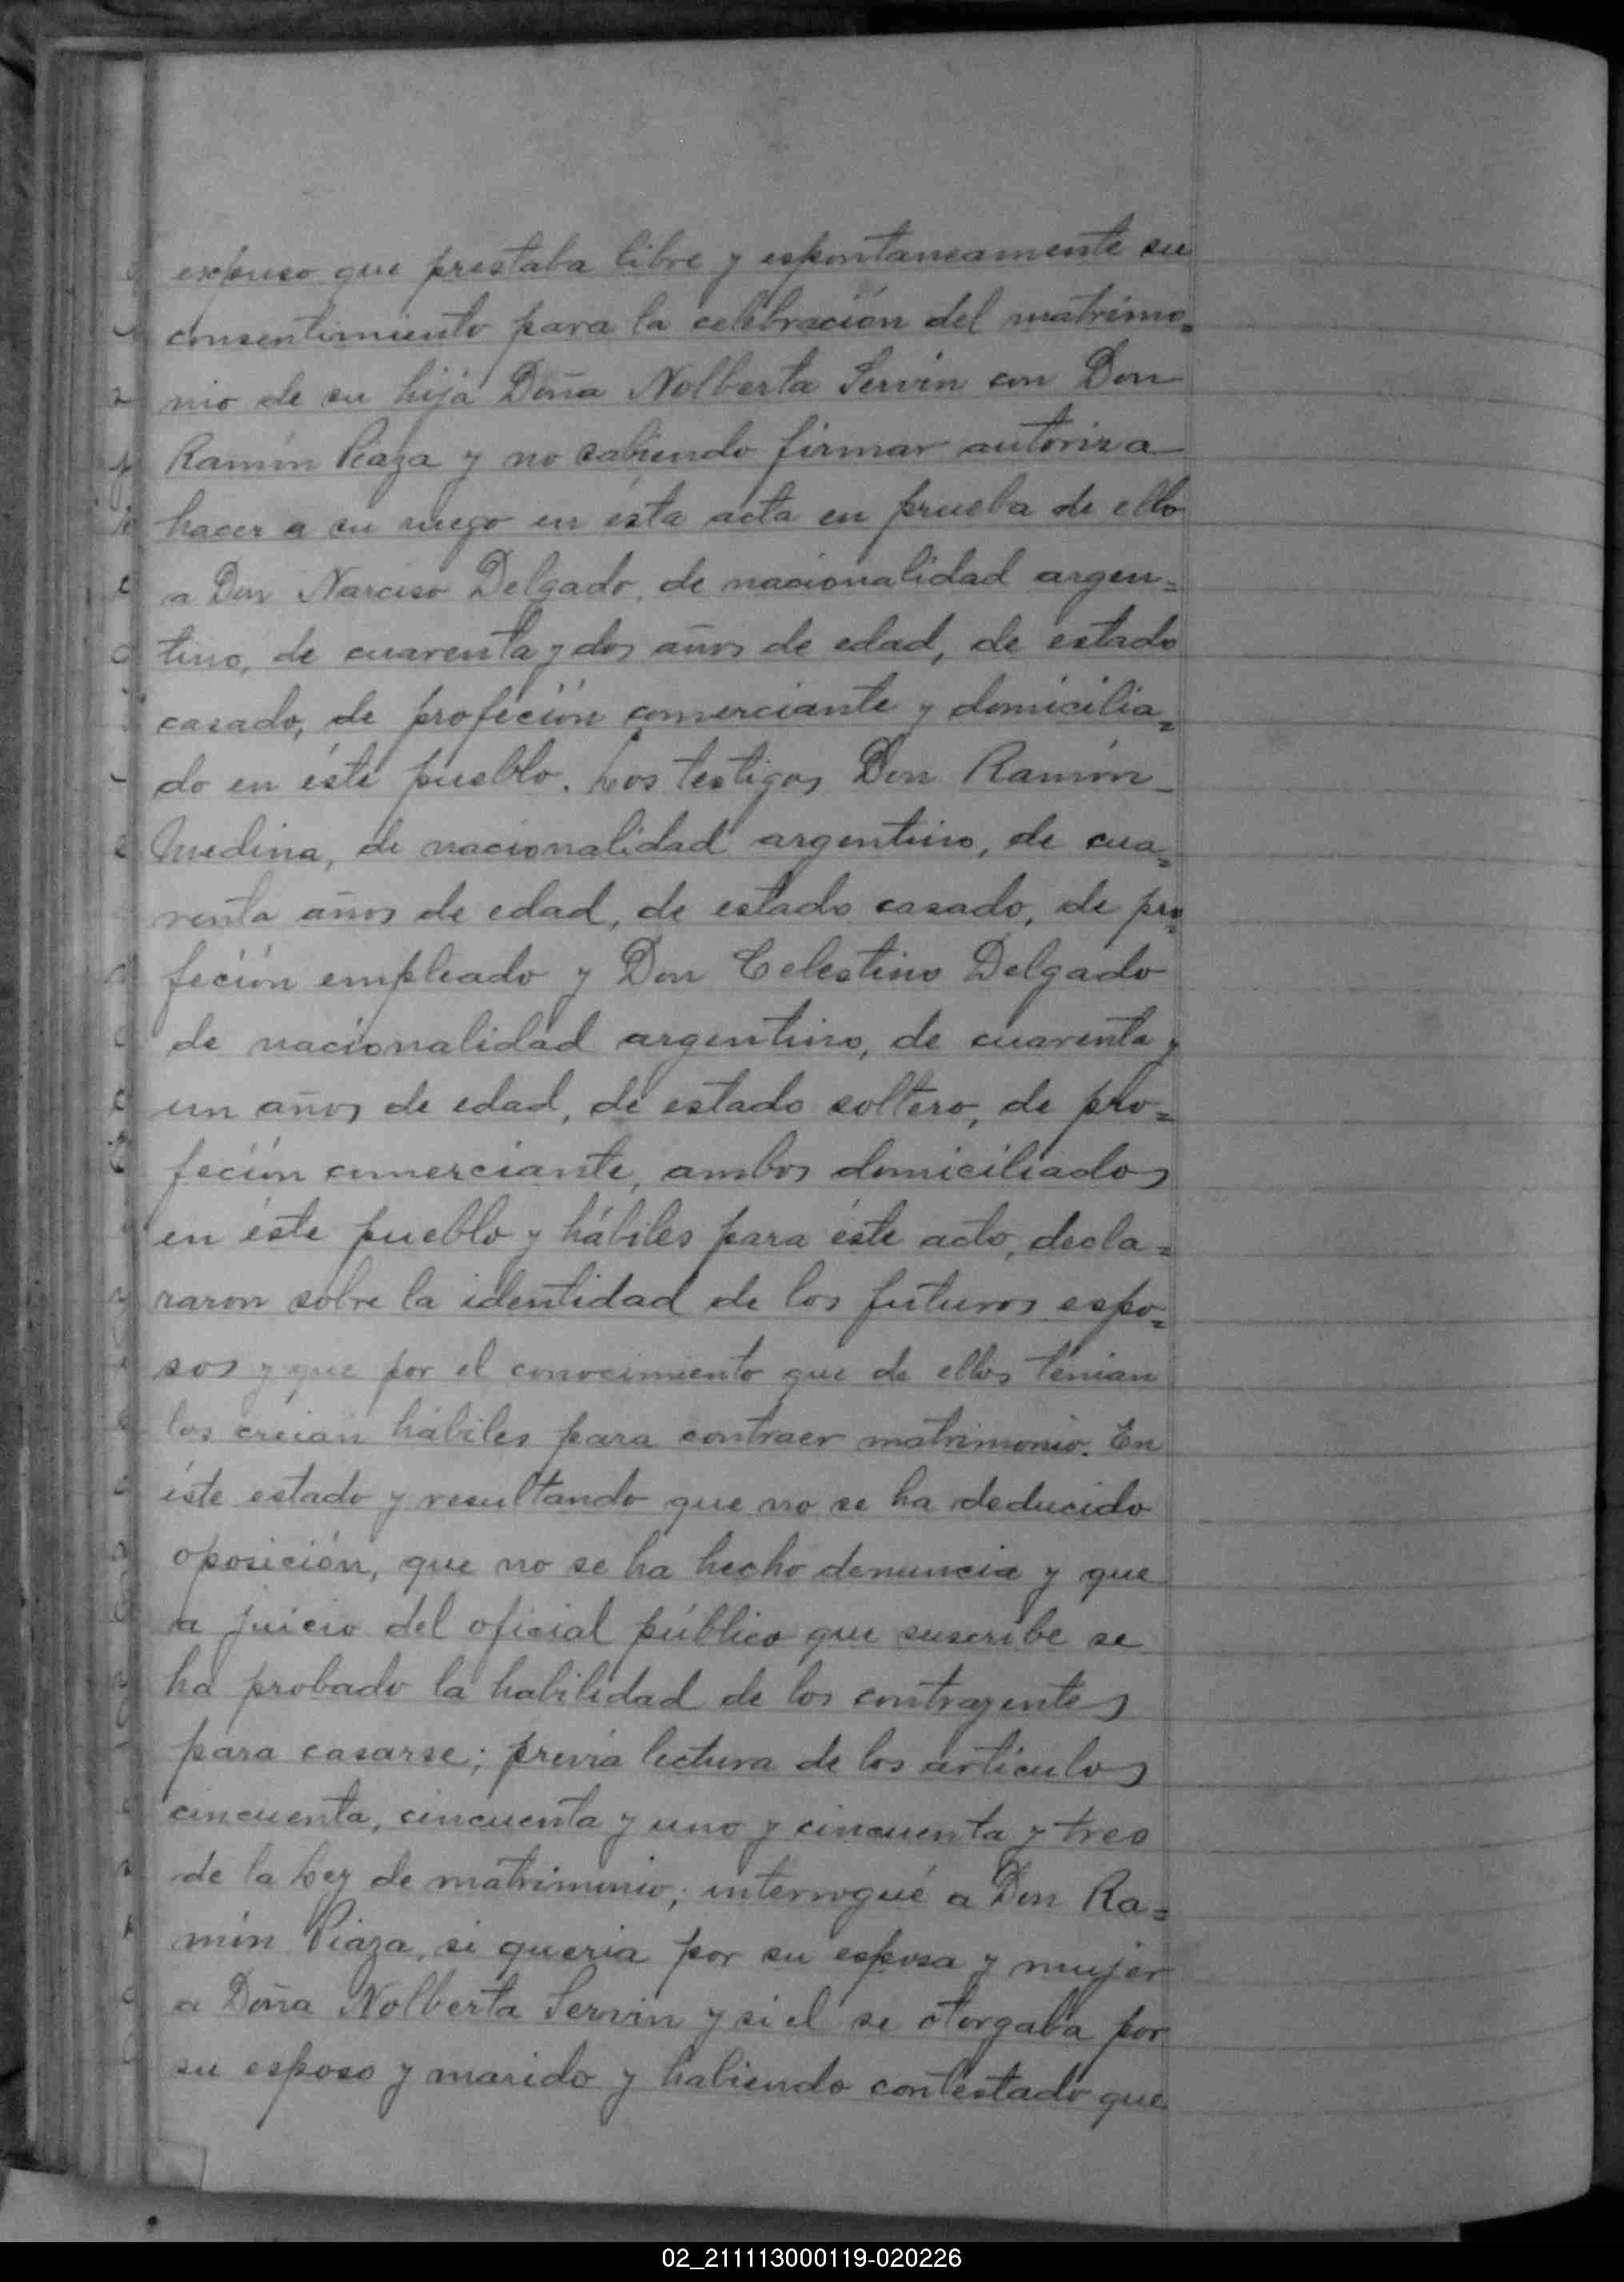 expuso que prestaba libre y espontaneamente su
consentimiento para la celebración del matrimo=
nio de su hija Doña Nolberta Servin con Don
Ramón Piaza y no sabiendo firmar autoriza
hacer a su ruego en ésta acta en prueba de ello
a Don Narciso Delgado, de nacionalidad argen=
tino, de cuarenta y dos años de edad, de estado
casado, de profeción comerciante y domicilia=
do en éste pueblo. Los testigos Don Ramón
Medina, de nacionalidad argentino, de cua=
renta años de edad, de estado casado, de pro=
feción empleado y Don Celestino Delgado
de nacionalidad argentino, de cuarenta y
un años de edad, de estado soltero, de pro=
feción comerciante, ambos domiciliados
en éste pueblo y hábiles para éste acto, decla=
raron sobre la identidad de los futuros espo=
sos y que por el conocimiento que de ellos tenian
los creian hábiles para contraer matrimonio. En
éste estado y resultando que no se ha deducido
oposición, que no se ha hecho denuncia y que
a juicio del oficial público que suscribe se
ha probado la habilidad de los contrayentes
para casarse; previa lectura de los artículos
cincuenta, cincuenta y uno y cincuenta y tres
de la Ley de matrimonio; interrogué a Don Ra=
món Piaza, si queria por su esposa y mujer
a Doña Nolberta Servin y si el se otorgaba por
su esposo y marido y habiendo contestado que
02_211113000119-020226